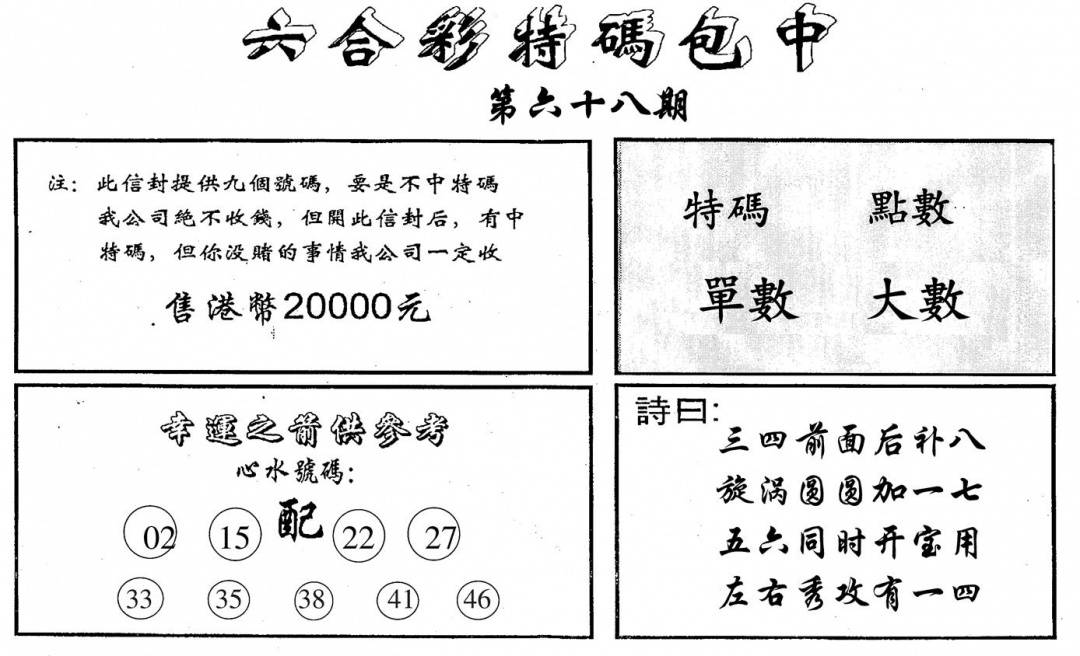 六合彩特碼包中
第六十八期
注：此信封提供九個號碼，要是不中特碼
我公司絕不收錢，但開此信封后，有中
特碼，但你没賭的事情我公司一定收
售港幣20000元
特碼 點數
單數 大數
幸運之箭供參考
心水號碼：
配
02 15 22 27
33 35 38 41 46
詩曰：
三四前面后补八
旋涡圆圆加一七
五六同时开宝用
左右秀攻有一四